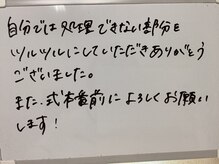 自分では処理できない部分を
ツルツルにしていただきありがとう
ございました。
また、式本番前によろしくお願い
します!